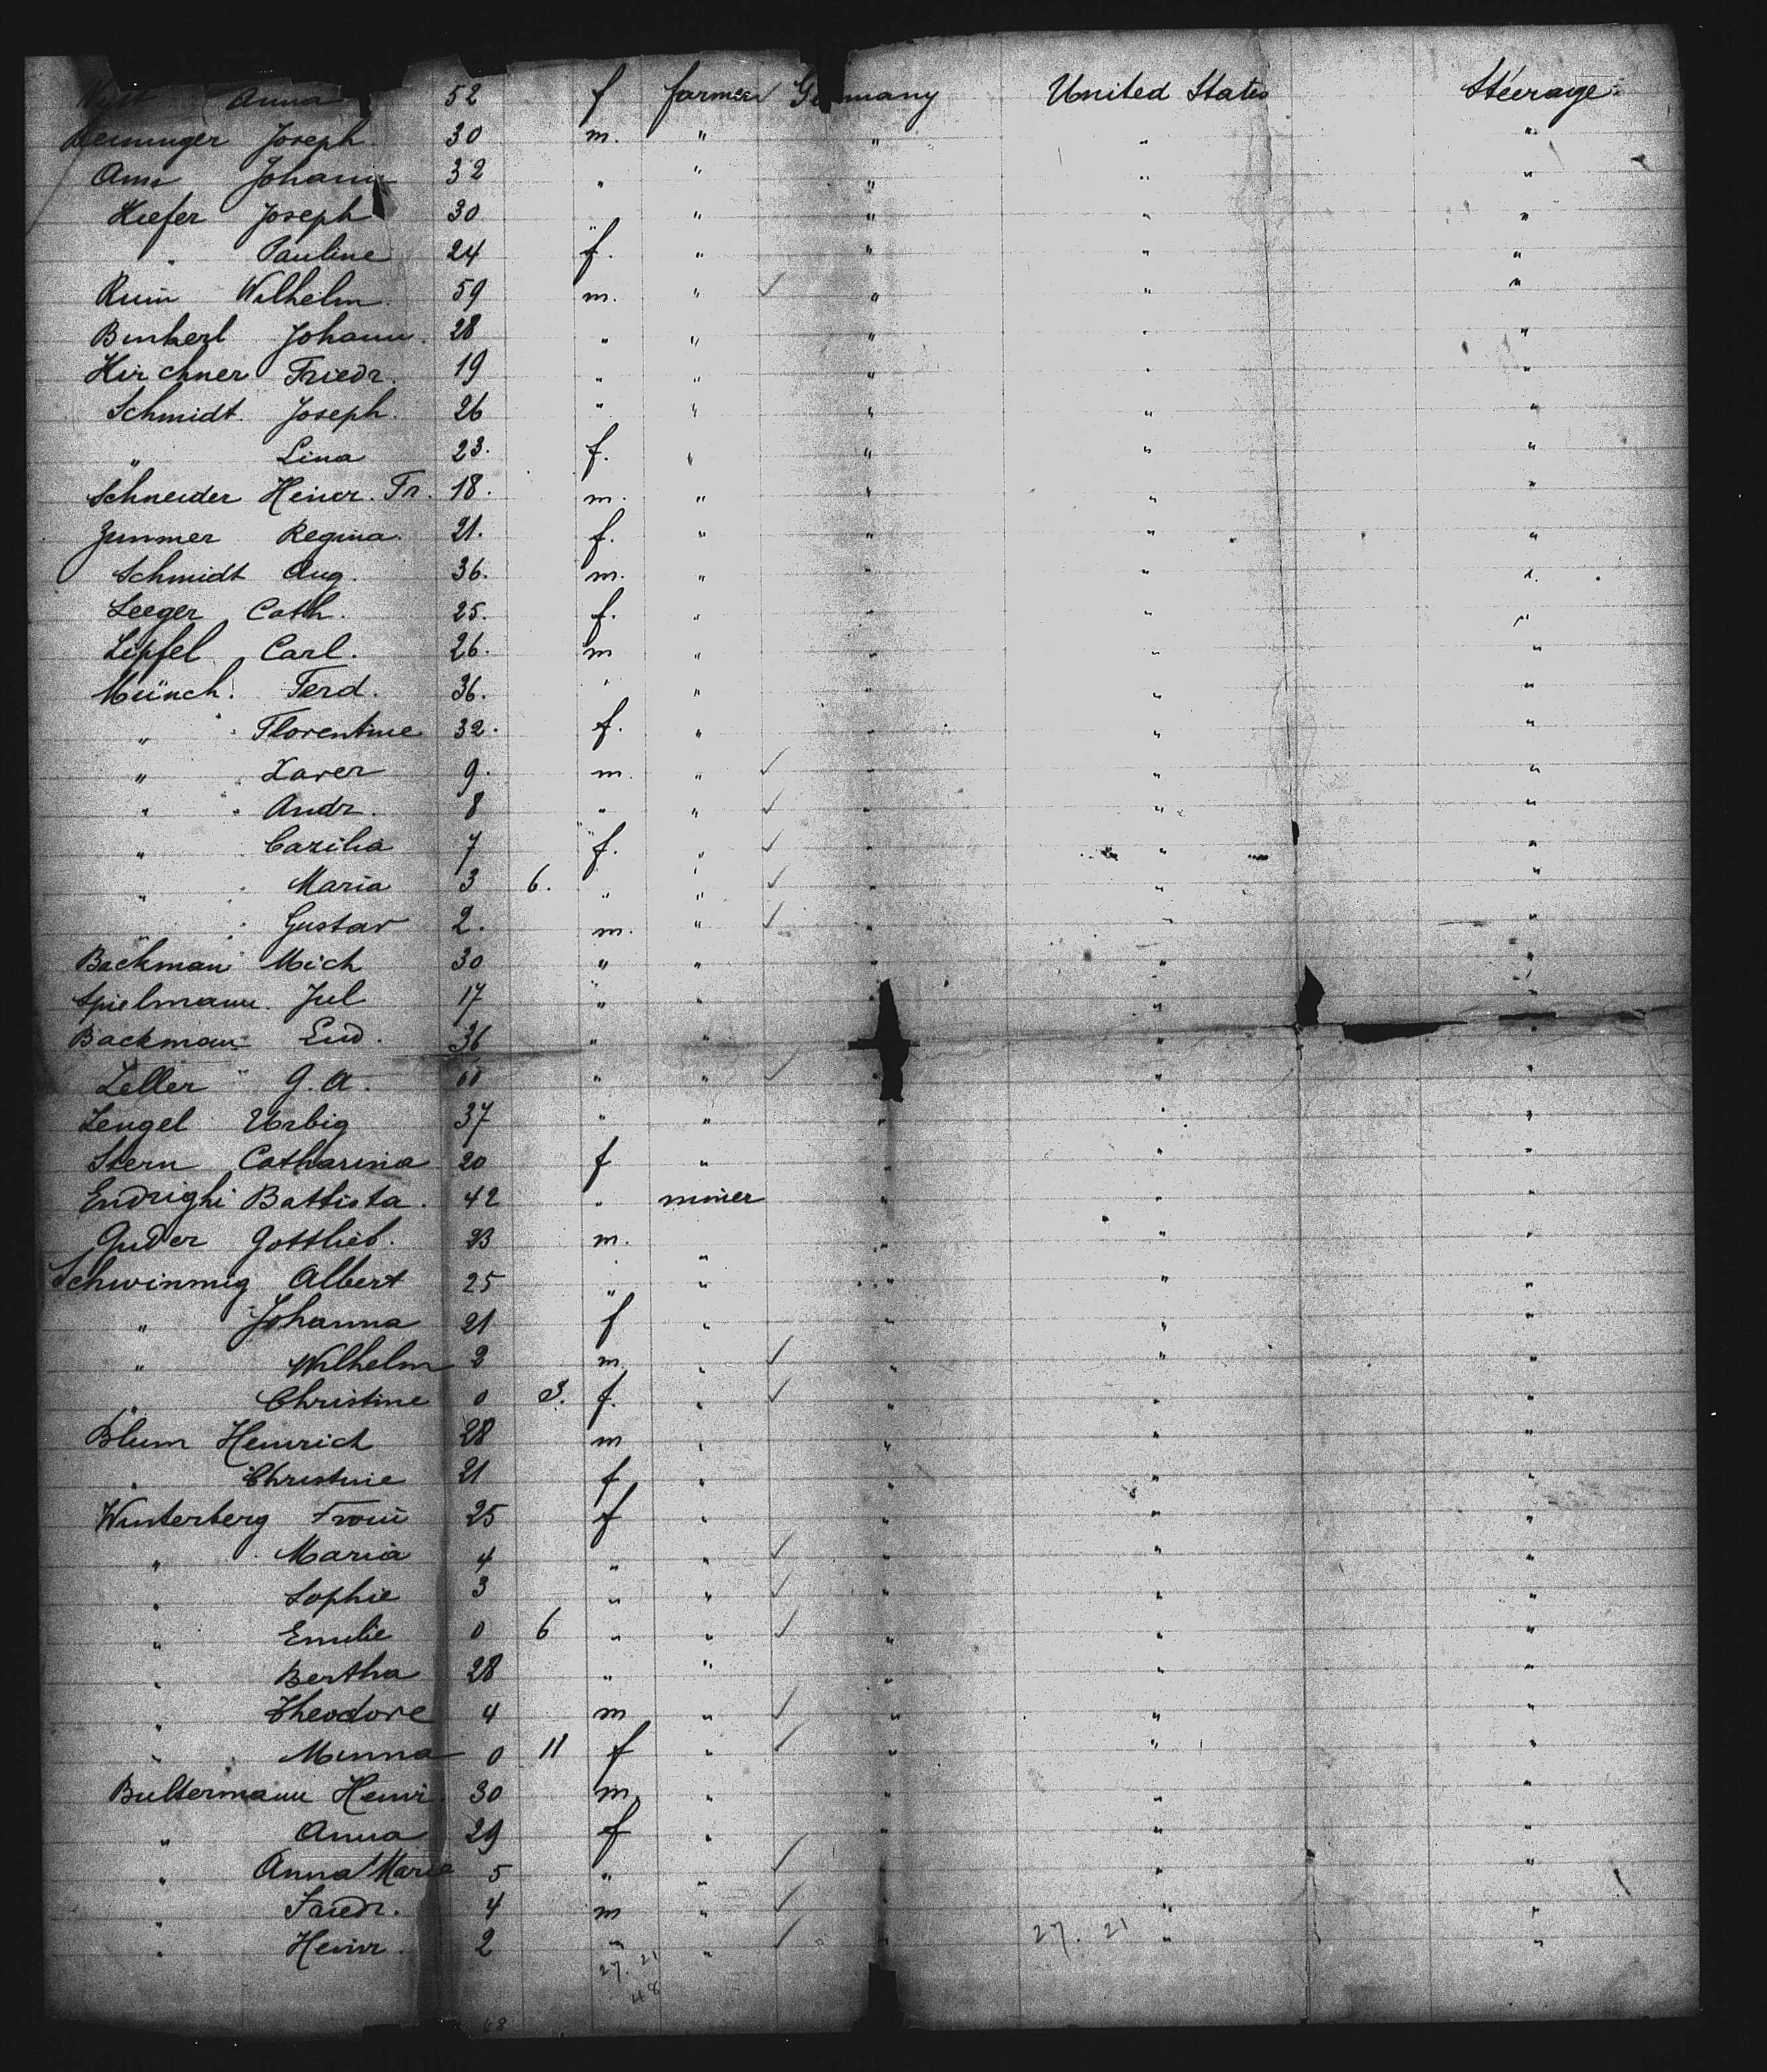 Anna 52 f farmer Germany United States Steerage
Deininger Joseph. 30 m. " " " "
Johann 32 " " " " "
Kiefer Joseph 30 " " " " "
" Pauline 24 f. " " " "
Wilhelm. 59 m. " ✓ " " "
Binkert Johann. 28 " " " " "
Kirchner Friedr. 19 " " " " "
Schmidt Joseph. 26 " " " " "
" Lina 23. f. " " " "
Schneider Heinr. Fr. 18. m. " " " "
Zimmer Regina. 21. f. " " " "
Schmidt Aug. 36. m. " " " "
Seeger Cath. 25. f. " " " "
Lipfel Carl. 26. m " " " "
Münch. Ferd. 36. " " " " "
" Florentine 32. f. " " " "
" Xaver 9. m. " ✓ " " "
" Andr. 8 " " ✓ " " "
" 7 f. " ✓ " " "
" Maria 3 6. " " ✓ " " "
" Gustav 2. m. " ✓ " " "
Backman Mich 30 " " " " "
Spielmann. Jul 17 " " " " "
Backman 36 " " " " "
Zeller G. A. " " ✓ " " "
Lengel Urbig 37 " " " " "
Stern Catharina 20 f " " " "
Endrighi Battista. 42 " miner " " "
Guder Gottlieb. 23 m. " " " "
Schwinmig Albert 25 " " " " "
" Johanna 21 f " " " "
" Wilhelm 2 m. " ✓ " " "
" Christine 0 3. f. " ✓ " " "
Blum Heinrich 28 m " " " "
" Christine 21 f " " " "
Winterberg 25 f " " " "
" Maria 4 " " ✓ " " "
" Sophie 3 " " ✓ " " "
" Emilie 0 6 " " ✓ " " "
" Bertha 28 " " " " "
" Theodore 4 m " ✓ " " "
" Minna 0 11 f " ✓ " " "
Bultermann Heinr. 30 m. " " " "
" Anna 29 f " " " "
" Anna Marie 5 " " ✓ " " "
" Friedr. 4 m " ✓ " " "
" Heinr. 2 " " ✓ " " "
27. 21 27. 21
48
68